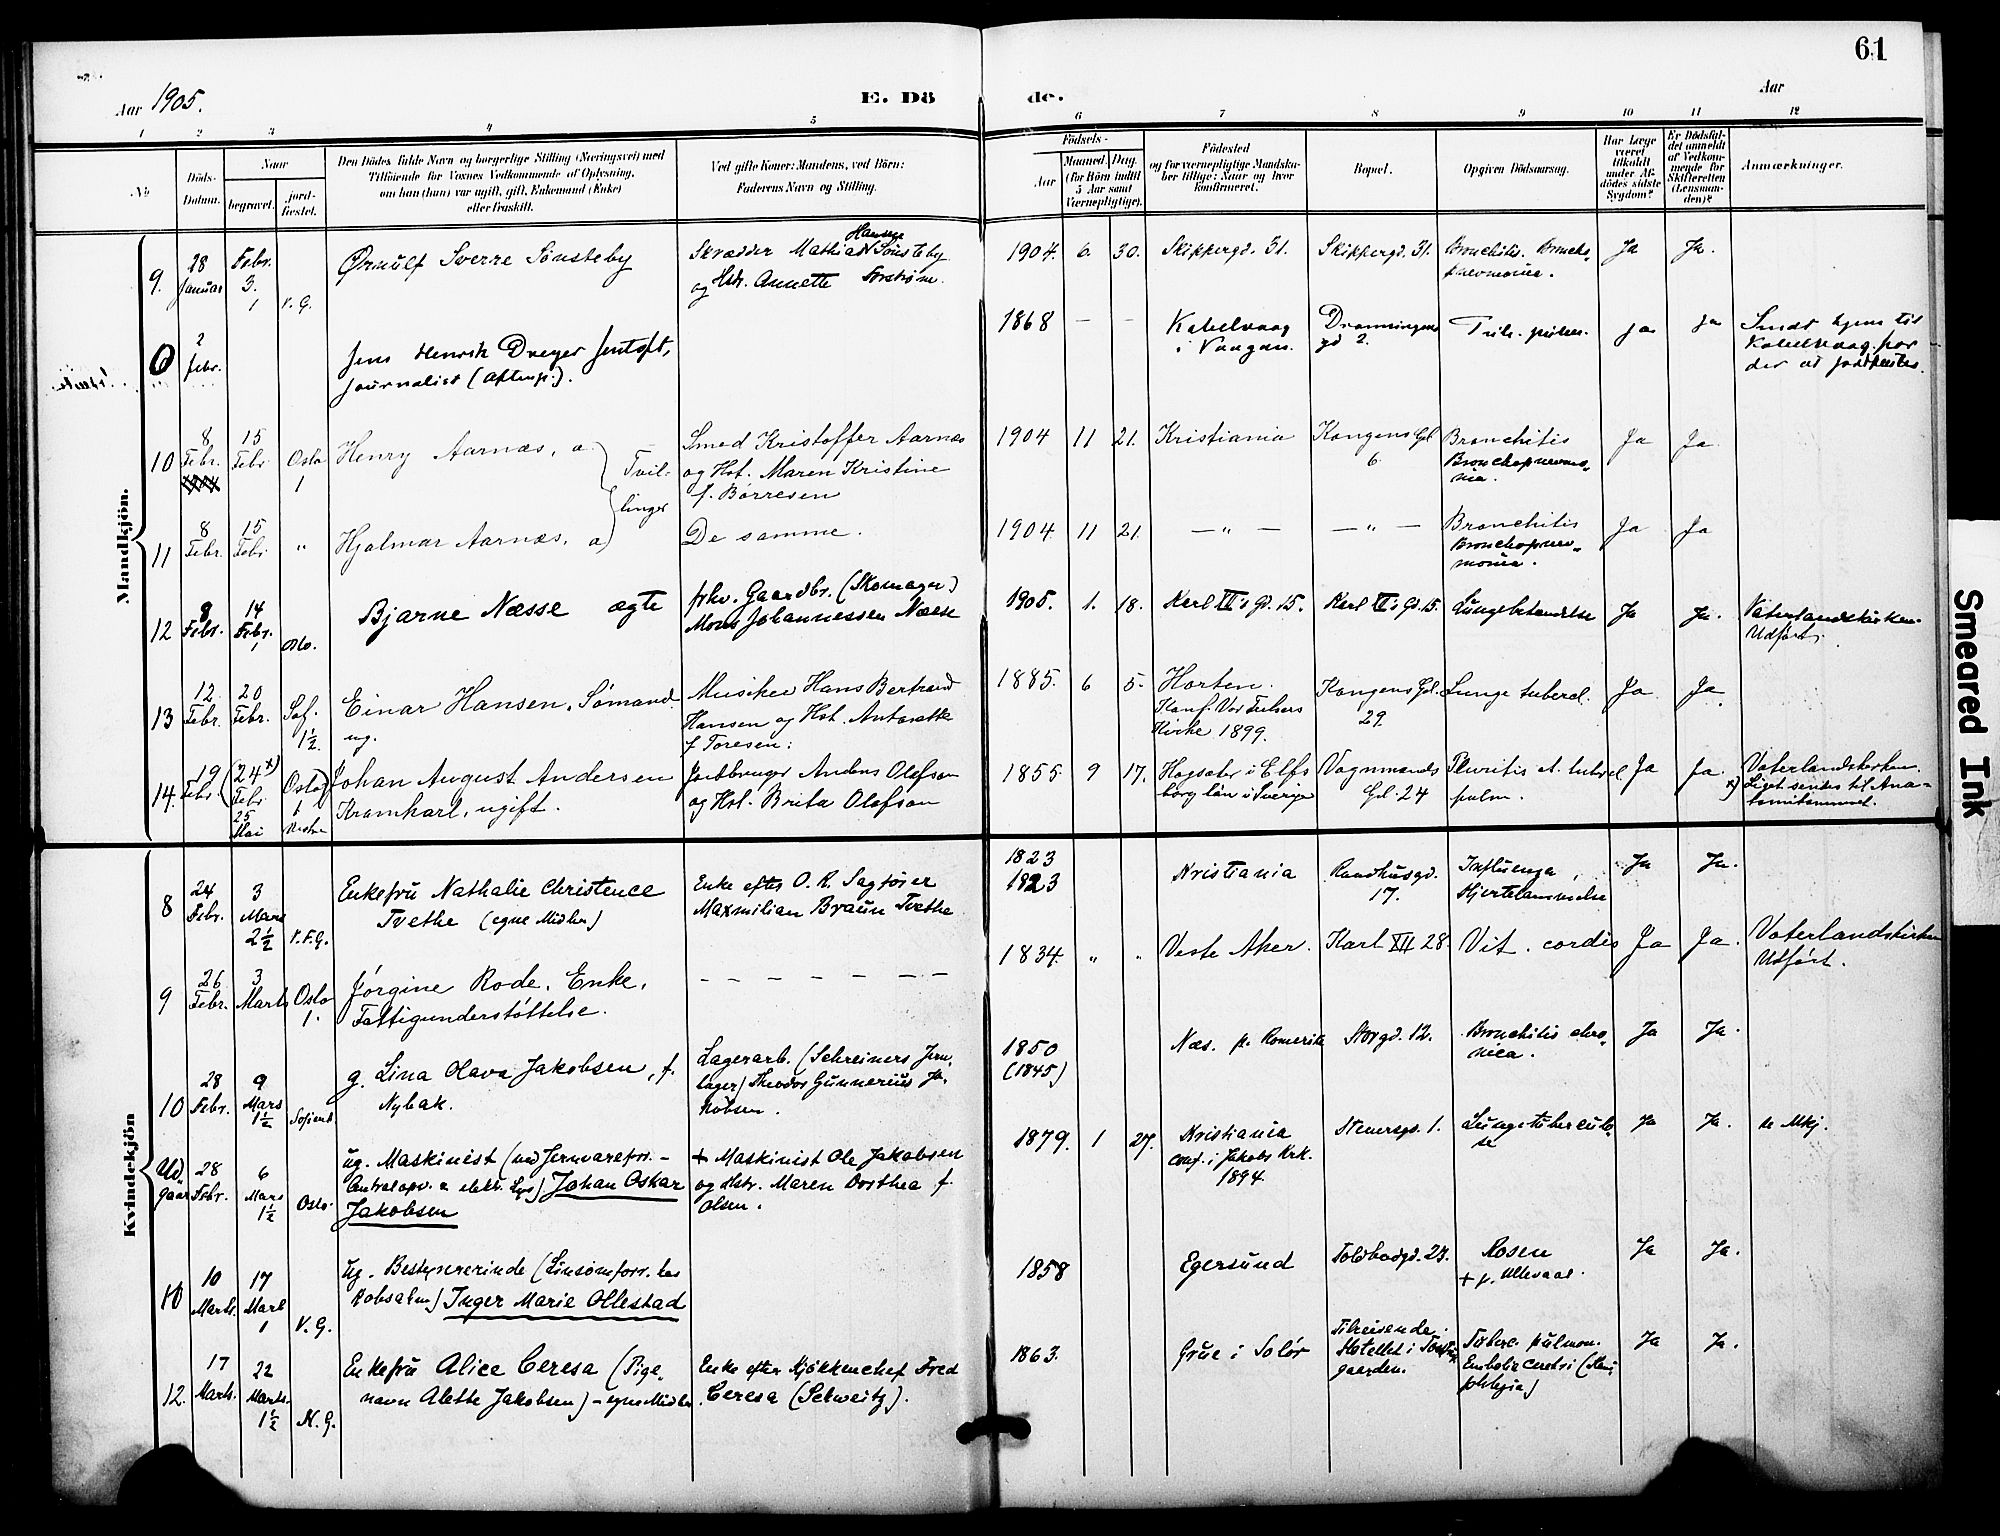 61
Aar 1905.
E. Dö
de.
Aar
1 2 3 4 5 6 7 8 9 10 11 12
No
Döds-
Datum.
Naar
begravet.
jord-
fæstet.
Den Dödes fulde Navn og borgerlige Stilling (Næringsvei) med
Tilföiende for Voxnes Vedkommende af Oplysning,
om han (hun) var ugift, gift, Enkemand (Enke)
eller fraskilt.
Ved gifte Koner: Mandens, ved Börn:
Faderens Navn og Stilling.
Födsels-
Aar
Maaned Dag.
(for Börn indtil
5 Aar samt
Værnepligtige).
Födested
og for værnepligtige Mandska-
ber tillige: Naar og hvor
konfirmeret.
Bopæl.
Opgiven Dödsaarsag.
Har Læge
været
tilkaldt
under Af-
dödes sidste
Sygdom?
Er Dödsfal-
det anmeldt
af Vedkom-
mende for
Skifteretten
(Lensman-
den)?
Anmærkninger.
Mandkjön.
9. 28 Januar Febr. 3. 1 V. G.
Ørnulf Sverre Sønsteby
Skrædder Mathias Hansen Sønsteby
og Hstr. Annette
1904. 6. 30. Skippergd. 31. Skippergd. 31. Bronchitis. Broncho-
pnevmonie. Ja Ja.
0 2 Febr.
Jens Henrik Dreyer Jentoft,
journalist (Aftenp.).
1868 — — Kabelvaag
i Vaagan. Dronningens
gd 2. ja ja Kabelvaag for
der at jordfæstes.
10 8 Febr. 15 Febr Oslo 1
Henry Aarnæs, a Tvil-
linger
Smed Kristoffer Aarnæs
og Hst. Maren Kristine
f. Børresen
1904 11 21. Kristiania Kongens Gd.
6 Bronchitis
Bronchopnevmo-
nia. Ja Ja
11 8 Febr. 15 Febr. "
Hjalmar Aarnæs, a
De samme.
1904. 11 21. — " — — " — Bronchitis
Bronchopnev-
monia. Ja Ja
12 8 Febr. 14 Febr. 1 Oslo.
Bjarne Næsse ægte
fhv. Gaardbr. (Skomager)
Mons Johannessen Næsse
1905. 1. 18. Karl XII's Gd. 15. Karl XII's Gd. 15. Lungebetændelse Ja Ja. Vaterlandskirken
Udført.
13 12 Febr. 20 Febr. Sof. 1½
Einar Hansen, Sømand
ug.
Musiker Hans Bertrand
Hansen og Hst. Antonette
f Toresen.
1885. 6 5. Horten.
Konf. Vor Frelsers
Kirke 1899. Kongens Gd.
29. Lunge tubercl. Ja Ja
14. 19 Febr (24 x) Febr Oslo) 1
25 Mai Vestre
Johan August Andersen
Kramkarl, ugift.
Jordbruger Anders Olofson
og Hst. Brita Olofson
1855 9 17. i Elfs
borg län i Sverige Vognmands
Gd. 24 Pleuritis et. tubercl
pulm. Ja Ja. Vaterlandskirken.
x) Liget sendes til Ana-
tomikammeret.
Kvindekjön
8 24 Febr. 3 Mars 2½ V.F.G.
Enkefru Nathalie Christence
Tvethe (egne Midler)
Enke efter O. R. Sagfører
Maxmilian Braun Tvethe
1823
1823 Kristiania Raadhusgd.
17. Influenza,
Hjertelammelse Ja Ja.
9 26 Febr. 3 Marts Oslo 1.
Jørgine Rode, Enke,
Fattigunderstøttelse.
— — — — — — —
1834. " " Vestre Aker. Karl XII 28. Vit. cordis Ja Ja. Vaterlandskirken
Udført.
10 28 Febr. 9 Mars 1½ Sofienb.
g. Lina Olava Jakobsen, f.
Nybak.
Lagerarb. (Schreiners Jern-
lager) Theodor Gunnerius Ja-
kobsen.
1850
(1845) Næs. p. Romerike Storgd. 12. Bronchitis chro-
nica. Ja Ja.
Ud-
gaar 28 Febr. 6 Mars 1½ Oslo.
ug. Maskinist (ved Jernvareforr. -
Centralopv. & elekt. Lys) Johan Oskar
Jakobsen
+ Maskinist Ole Jakobsen
og Hstr. Maren Dorthea f.
Olsen.
1879. 1 27. Kristiania
conf. i Jakobs Krk.
1894. Stenersgd. 1. Lungetuberculo-
se Ja Ja. se Mkj.
10 Marts. 17 Mars 1 V. G.
Ug. Bestyrerinde (Linsømforr. hos
Robsahm) Inger Marie Ollestad
1858 Egersund Toldbodgd. 27. Rosen
+ p. Ullevaal. Ja Ja.
12. 17 Marts. 22 Marts. 1½ N. G.
Enkefru Alice Ceresa (Pige-
navn Alette Jakobsen) - egne Midler
Enke efter Kjøkkenchef Fred
Ceresa (Schweitz).
1863. Grue i Solør Tilreisende.
Hotellet i
gaarden. Tuberc. pulmon.
Embolia cerebri (Hemi-
plegia) Ja Ja.
Smeared Ink